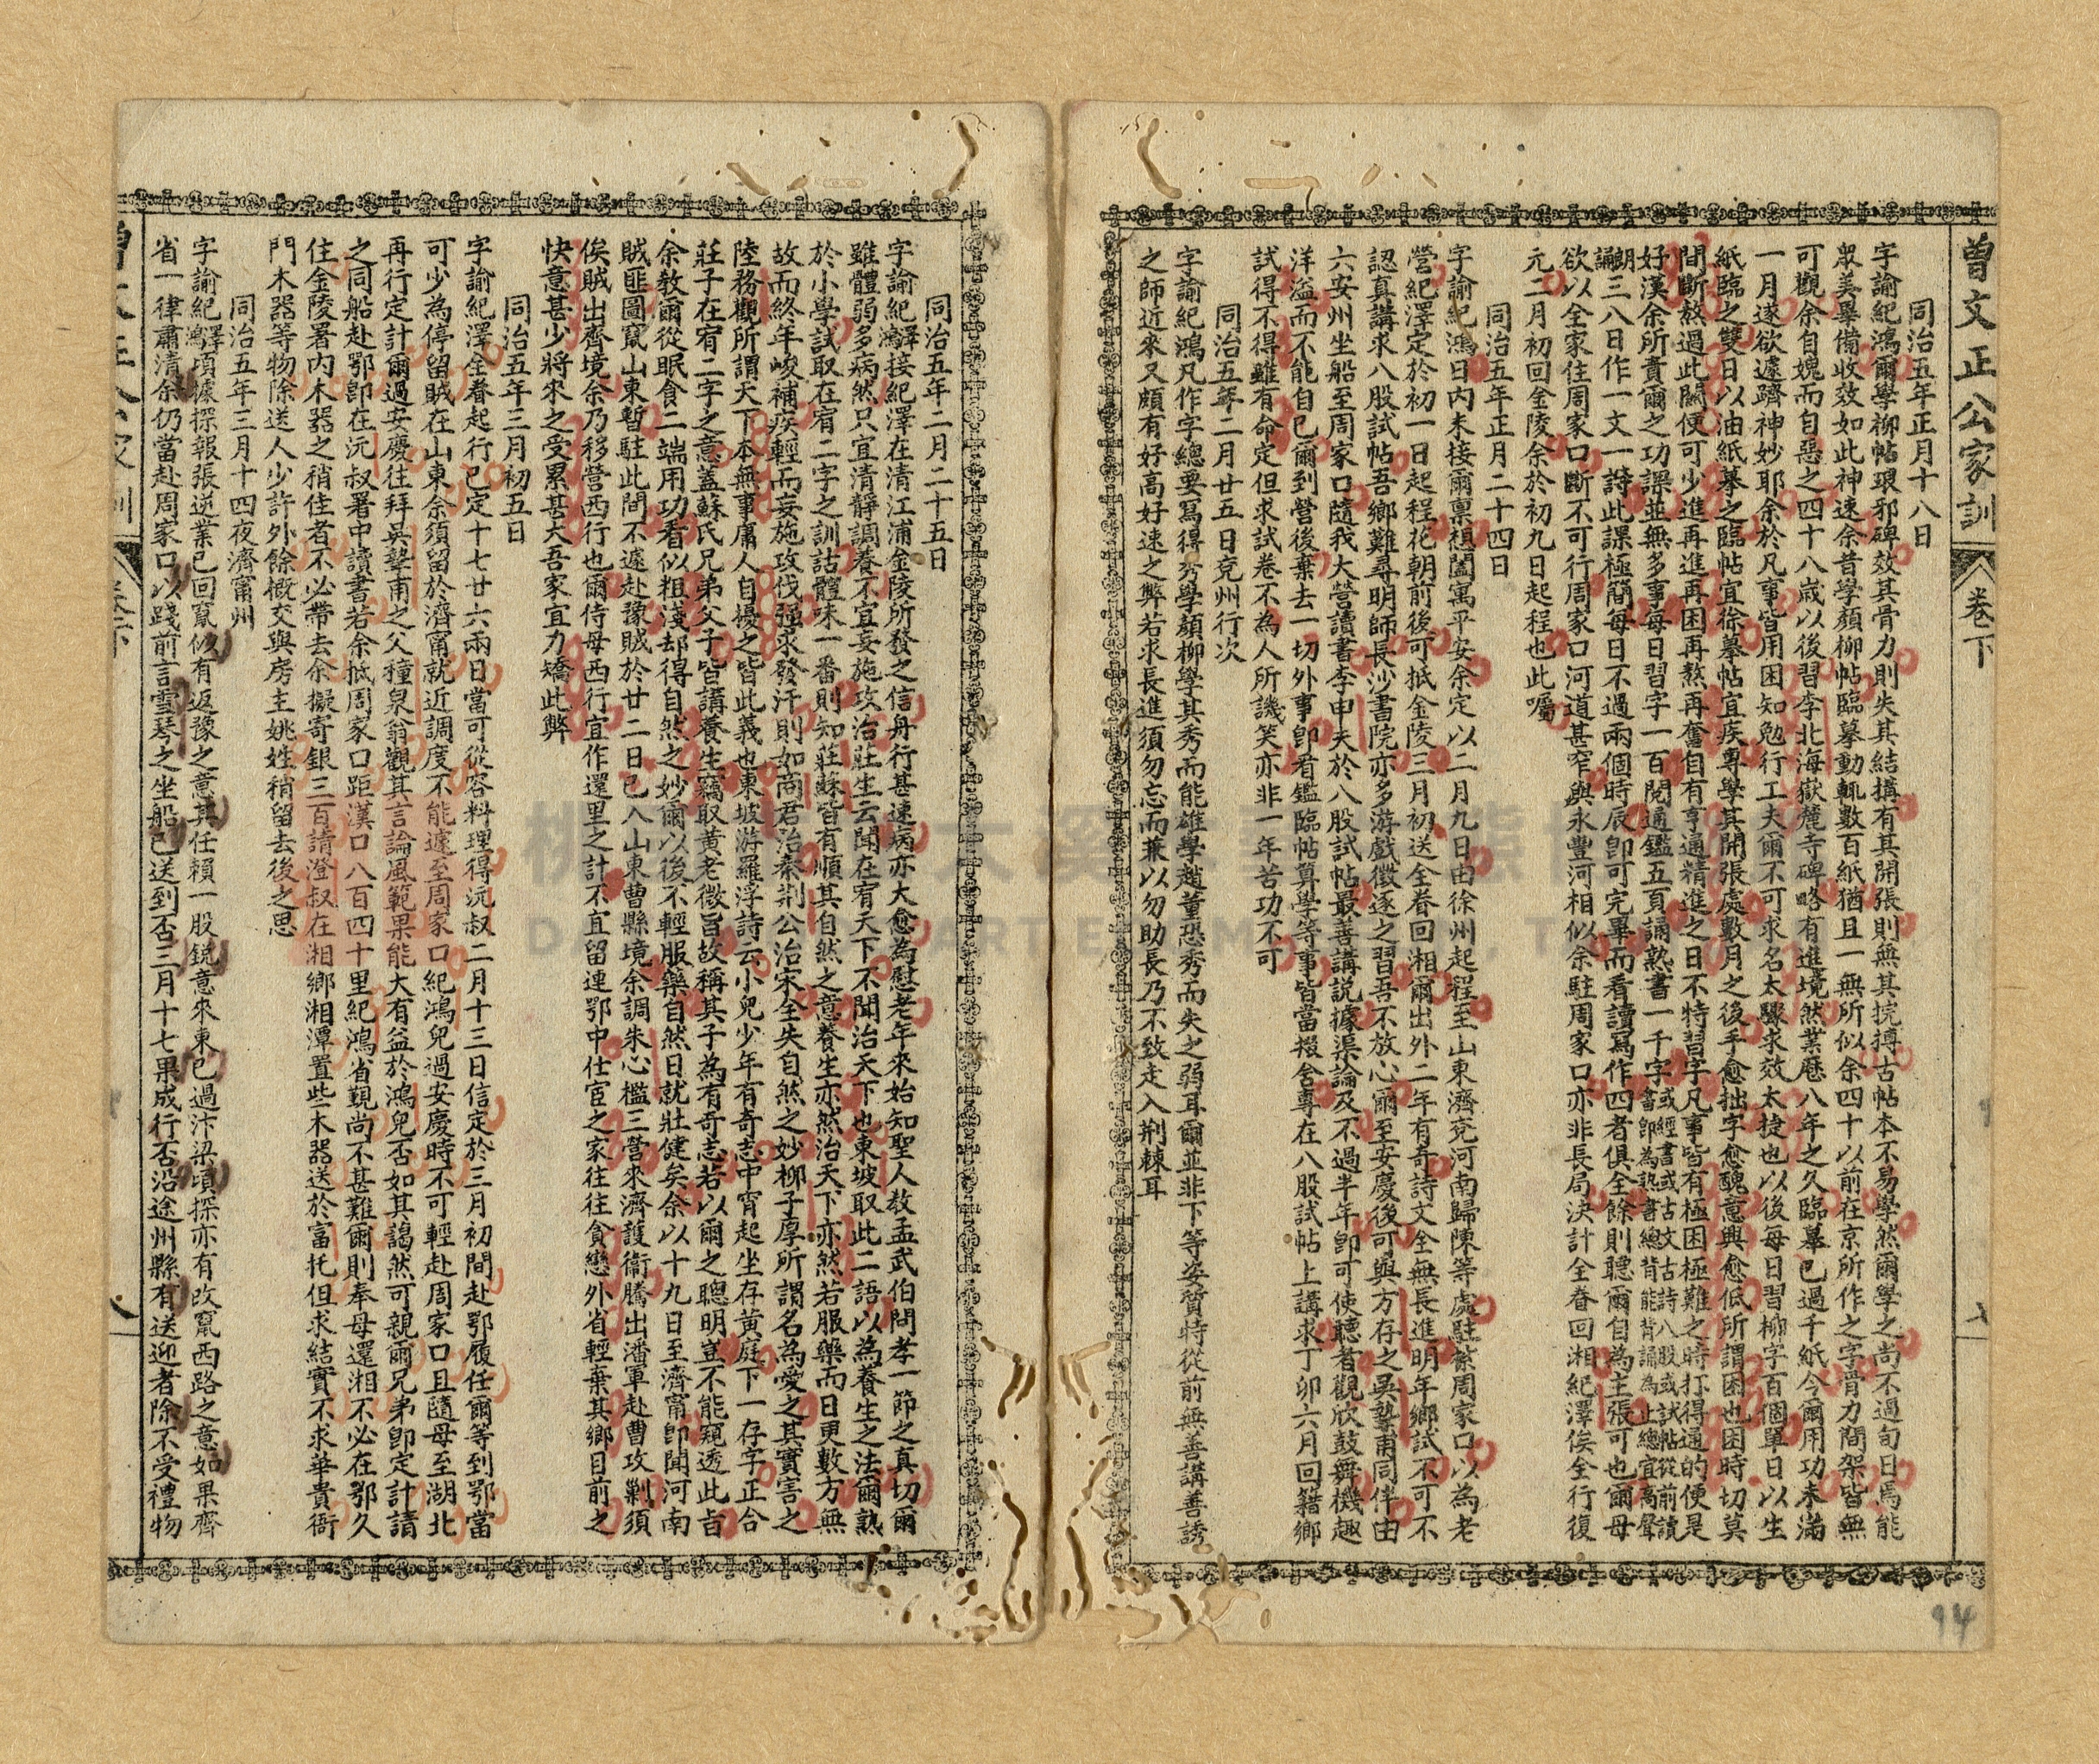 曾文正公家訓 卷下
同治五年正月十八日
字諭紀鴻爾學柳帖琅邪碑效其骨力則失其結構有其開張則無其捖搏古帖本不易學然爾學之尚不過旬日焉能
眾美畢備收效如此神速余昔學顏柳帖臨摹動輒數百紙猶且一無所似余四十以前在京所作之字骨力間架皆無
可觀余自媿而自惡之四十八歲以後習李北海嶽麓寺碑略有進境然業歷八年之久臨摹已過千紙今爾用功未滿
一月遂欲遽躋神妙耶余於凡事皆用困知勉行工夫爾不可求名太驟求效太捷也以後每日習柳字百個單日以生
紙臨之雙日以油紙摹之臨帖宜徐摹帖宜疾專學其開張處數月之後手愈拙字愈醜意興愈低所謂困也困時切莫
間斷熬過此關便可少進再進再困再熬再奮自有亨通精進之日不特習字凡事皆有極困極難之時打得通的便是
好漢余所責爾之功課並無多事每日習字一百閱通鑑五頁誦熟書一千字或經書或古文古詩八股或試帖從前讀書即為熟書總背能背誦為止總宜高聲
朗誦三八日作一文一詩此課極簡每日不過兩個時辰卽可完畢而看讀寫作四者俱全餘則聽爾自為主張可也爾母
欲以全家住周家口斷不可行周家口河道甚窄與永豐河相似余駐周家口亦非長局決計全眷回湘紀澤俟全行復
元二月初回金陵余於初九日起程也此囑
同治五年正月二十四日
字諭紀鴻日內未接爾稟想闔寓平安余定以二月九日由徐州起程至山東濟兗河南歸陳等處駐紮周家口以為老
營紀澤定於初一日起程花朝前後可抵金陵三月初送全眷回湘爾出外二年有奇詩文全無長進明年鄉試不可不
認真講求八股試帖吾鄉難尋明師長沙書院亦多游戲徵逐之習吾不放心爾至安慶後可與方存之吳摯甫同伴由
六安州坐船至周家口隨我大營讀書李申夫於八股試帖最善講說據渠論及不過半年卽可使聽者觀欣鼓舞機趣
洋溢而不能自已爾到營後棄去一切外事卽看鑑臨帖算學等事皆當掇舍專在八股試帖上講求丁卯六月回籍鄉
試得不得雖有命定但求試卷不為人所譏笑亦非一年苦功不可
同治五年二月廿五日兗州行次
字諭紀鴻凡作字總要寫得秀學顏柳學其秀而能雄學趙董恐秀而失之弱耳爾並非下等姿質特從前無善講善誘
之師近來又頗有好高好速之弊若求長進須勿忘而兼以勿助長乃不致走入荆棘耳
同治五年二月二十五日
字諭紀澤鴻接紀澤在清江浦金陵所發之信舟行甚速病亦大愈為慰老年來始知聖人教孟武伯問孝一節之真切爾
雖體弱多病然只宜清靜調養不宜妄施攻治莊生云聞在宥天下不聞治天下也東坡取此二語以為養生之法爾熟
於小學試取在宥二字之訓詁體味一番則知莊蘇皆有順其自然之意養生亦然治天下亦然若服藥而日更數方無
故而終年峻補疾輕而妄施攻伐强求發汗則如商君治秦荆公治宋全失自然之妙柳子厚所謂名為愛之其實害之
陸務觀所謂天下本無事庸人自擾之皆此義也東坡游羅浮詩云小兒少年有奇志中宵起坐存黃庭下一存字正合
莊子在宥二字之意蓋蘇氏兄弟父子皆講養生竊取黃老微旨故稱其子為有奇志若以爾之聰明豈不能窺透此旨
余教爾從眠食二端用功看似粗淺却得自然之妙爾以後不輕服藥自然日就壯健矣余以十九日至濟甯卽聞河南
賊匪圖竄山東暫駐此間不遽赴豫賊於廿二日已入山東曹縣境余調朱心檻三營來濟護衞騰出潘軍赴曹攻剿須
俟賊出齊境余乃移營西行也爾侍母西行宜作還里之計不宜留連鄂中仕宦之家往往貪戀外省輕棄其鄉目前之
快意甚少將來之受累甚大吾家宜力矯此弊
同治五年三月初五日
字諭紀澤全眷起行已定十七廿六兩日當可從容料理得沅叔二月十三日信定於三月初間赴鄂履任爾等到鄂當
可少為停留賊在山東余須留於濟甯就近調度不能遽至周家口紀鴻兒過安慶時不可輕赴周家口且隨母至湖北
再行定計爾過安慶往拜吳摯甫之父穜泉翁觀其言論風範果能大有益於鴻兒否如其藹然可親爾兄弟卽定計請
之同船赴鄂卽在沅叔署中讀書若余抵周家口距漢口八百四十里紀鴻省覲尚不甚難爾則奉母還湘不必在鄂久
住金陵署內木器之稍佳者不必帶去余擬寄銀三百請澄叔在湘鄉湘潭置些木器送於富圫但求結實不求華貴衙
門木器等物除送人少許外餘概交與房主姚姓稍留去後之思
同治五年三月十四夜濟甯州
字諭紀澤鴻頃據探報張逆業已回竄似有返豫之意其任賴一股銳意來東已過汴梁頃探亦有改竄西路之意如果齊
省一律肅清余仍當赴周家口以踐前言雪琴之坐船已送到否三月十七果成行否沿途州縣有送迎者除不受禮物
94